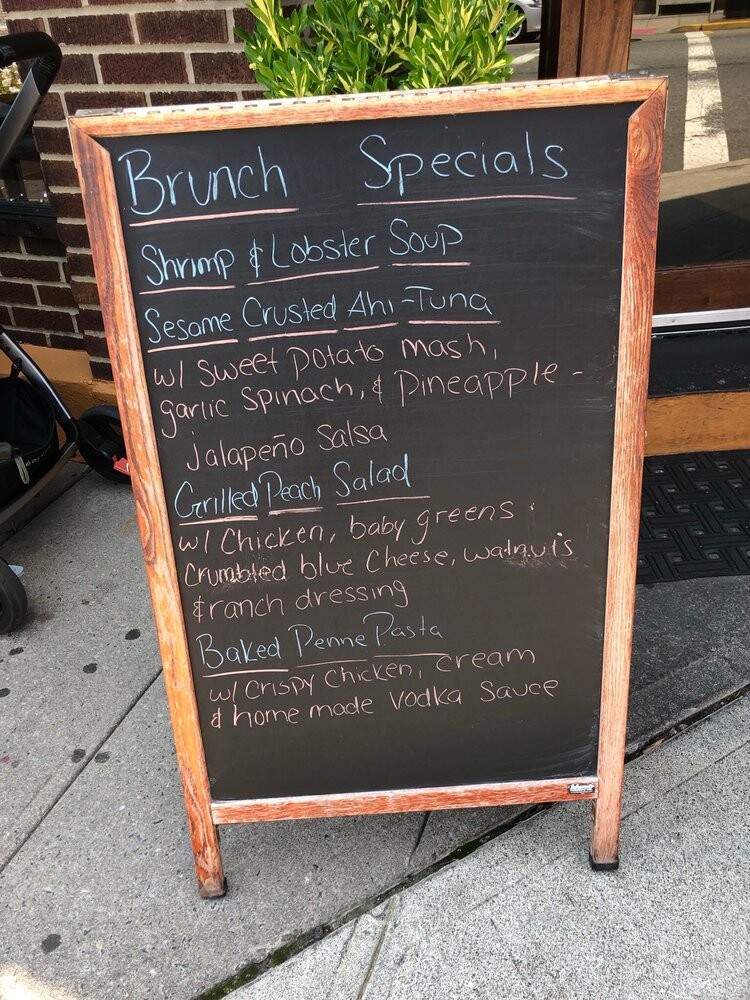 Brunch Specials
Shrimp & Lobster Soup
Sesame Crusted Ahi-Tuna
w/ sweet potato mash,
garlic spinach, & pineapple-
jalapeño salsa
Grilled Peach Salad
w/ chicken, baby greens
crumbled blue cheese, walnuts
& ranch dressing
Baked Penne Pasta
w/ crispy chicken, cream
& home made vodka sauce